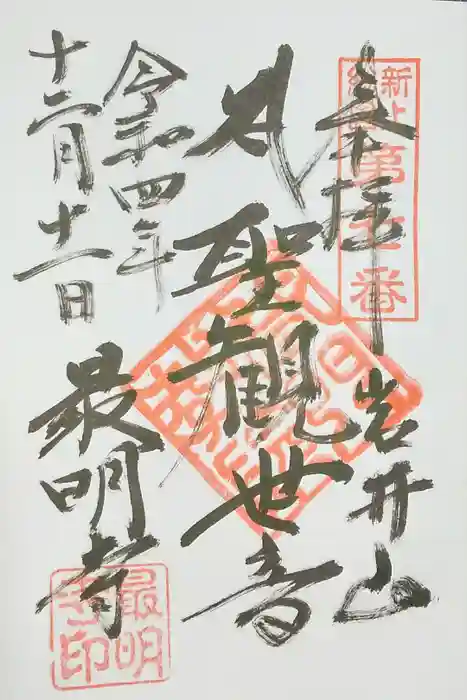 奉拝
岩井山
聖観世音
令和四年
十二月十一日
最明寺
新上総
第
番
最明
寺印